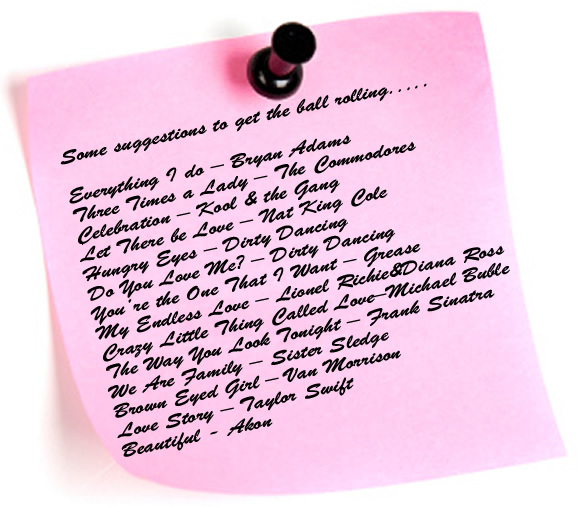 Some suggestions to get the ball rolling.....
Everything I do – Bryan Adams
Three Times a Lady – The Commodores
Celebration – Kool & the Gang
Let There be Love – Nat King Cole
Hungry Eyes – Dirty Dancing
Do You Love Me? – Dirty Dancing
You're the One That I Want – Grease
My Endless Love – Lionel Richie&Diana Ross
Crazy Little Thing Called Love–Michael Buble
The Way You Look Tonight – Frank Sinatra
We Are Family – Sister Sledge
Brown Eyed Girl –Van Morrison
Love Story – Taylor Swift
Beautiful - Akon